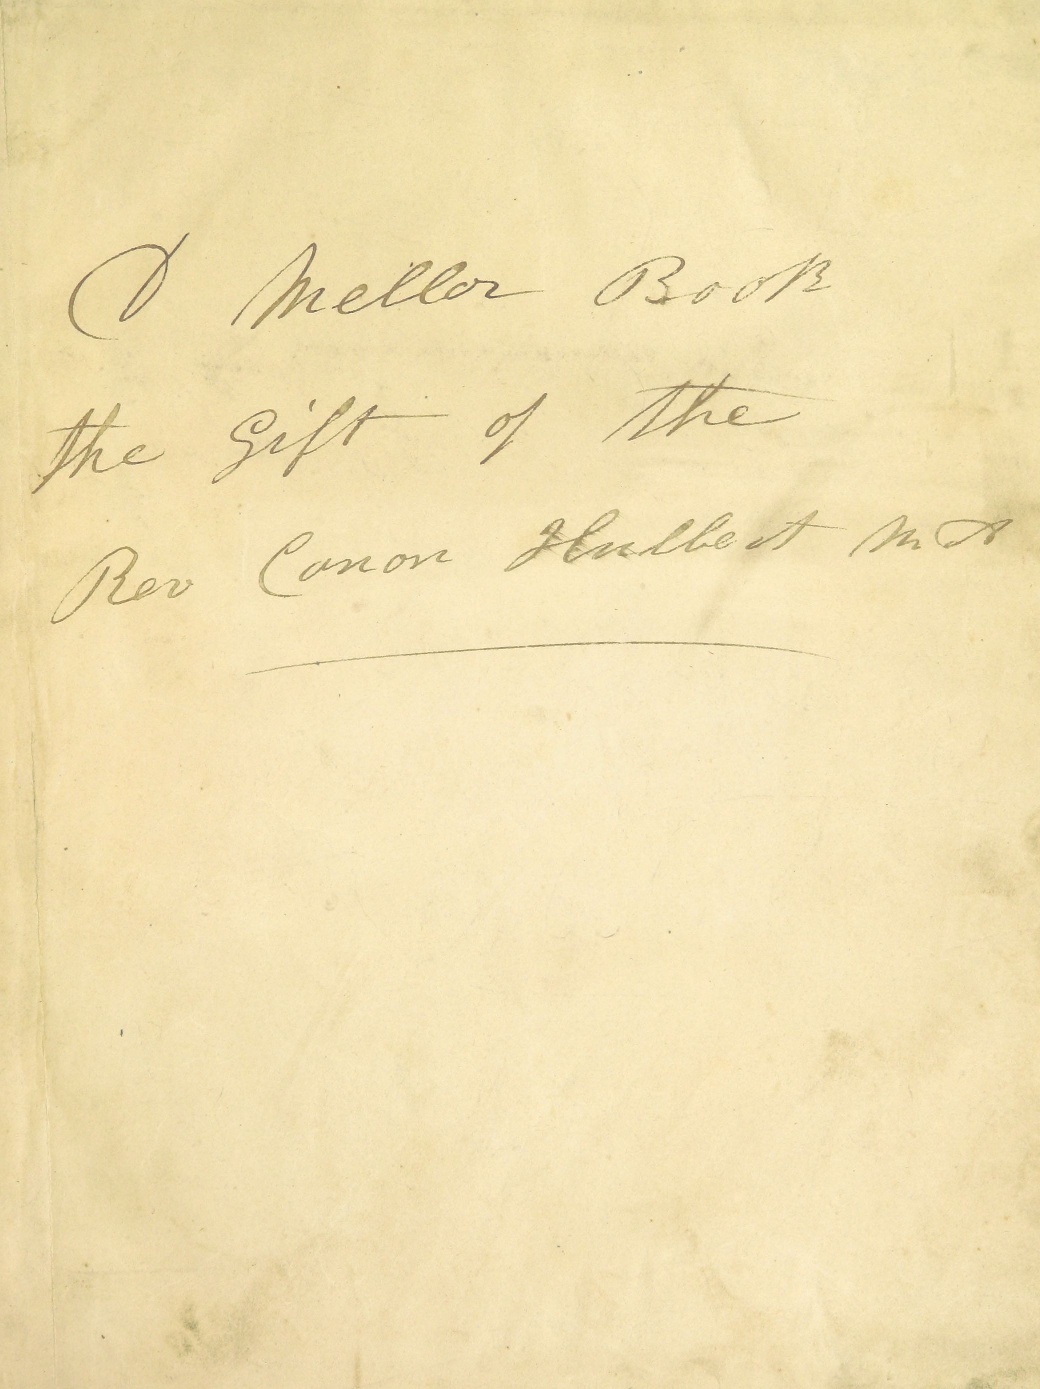 D Mellor Book
the Gift of the
Rev Canon Hulbert M A